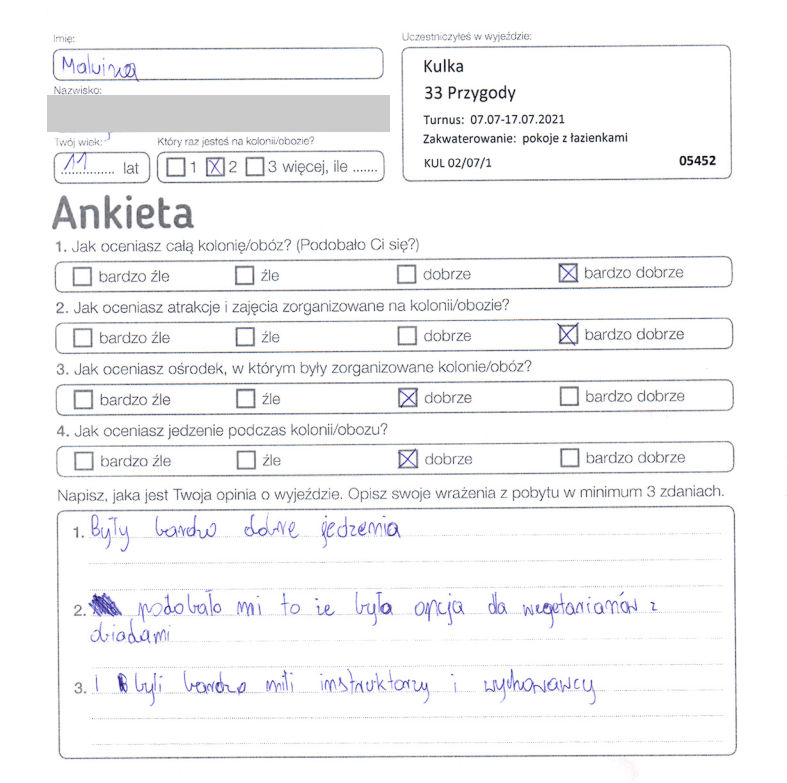 Imię:
Malwina
Nazwisko:
Twój wiek:
11 lat
Który raz jesteś na kolonii/obozie?
1 2 3 więcej, ile .......
Uczestniczyłeś w wyjeździe:
Kulka
33 Przygody
Turnus: 07.07-17.07.2021
Zakwaterowanie: pokoje z łazienkami
KUL 02/07/1 05452
Ankieta
1. Jak oceniasz całą kolonię/obóz? (Podobało Ci się?)
bardzo źle źle dobrze bardzo dobrze
2. Jak oceniasz atrakcje i zajęcia zorganizowane na kolonii/obozie?
bardzo źle źle dobrze bardzo dobrze
3. Jak oceniasz ośrodek, w którym były zorganizowane kolonie/obóz?
bardzo źle źle dobrze bardzo dobrze
4. Jak oceniasz jedzenie podczas kolonii/obozu?
bardzo źle źle dobrze bardzo dobrze
Napisz, jaka jest Twoja opinia o wyjeździe. Opisz swoje wrażenia z pobytu w minimum 3 zdaniach.
1. Były bardzo dobre jedzenia
2. podobało mi to że była opcja dla wegetarianów z
obiadami
3. I byli bardzo mili instruktorzy i wychowawcy